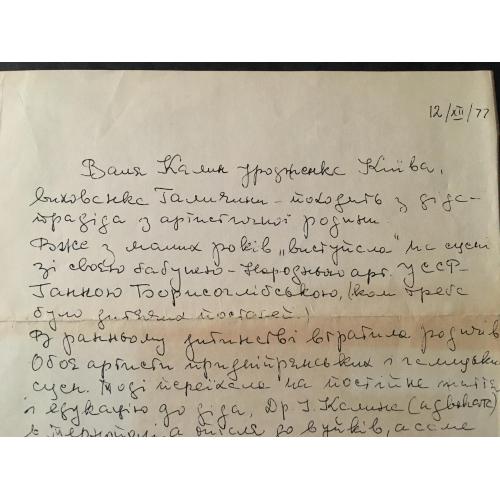 12/XII/77
Валя Калин уродженка Київа,
вихованка Галичини – походить з діда-
прадіда з артистичної родини.
Вже з малих років „виступала" на сцені
зі своєю бабунею – Народньою арт. УССР –
Ганною Борисоглібською, (коли треба
було дитячих постатей.)
В ранньому дитинстві втратила родичів
Обоє артисти придніпрянських і галицьких
сцен. Тоді переїхала на постійне життя
і едукацію до діда, Др. І. Калина (адвоката)
в Тернополі, а опісля до вуйків, а саме